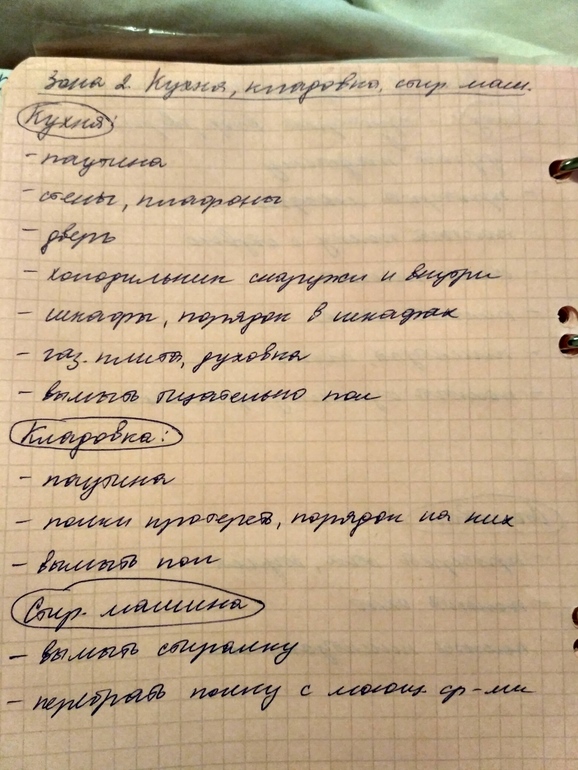 Зона 2. Кухня, кладовка, стир маш.
Кухня:
- паутина
- стены, плафоны
- дверь
- холодильник снаружи и внутри
- шкафы, порядок в шкафах
- газ. плита, духовка
- вымыть тщательно пол
Кладовка:
- паутина
- полки протереть, порядок на них
- вымыть пол
Стир. машина
- вымыть стиралку
- перебрать полку с моющ. ср-ми